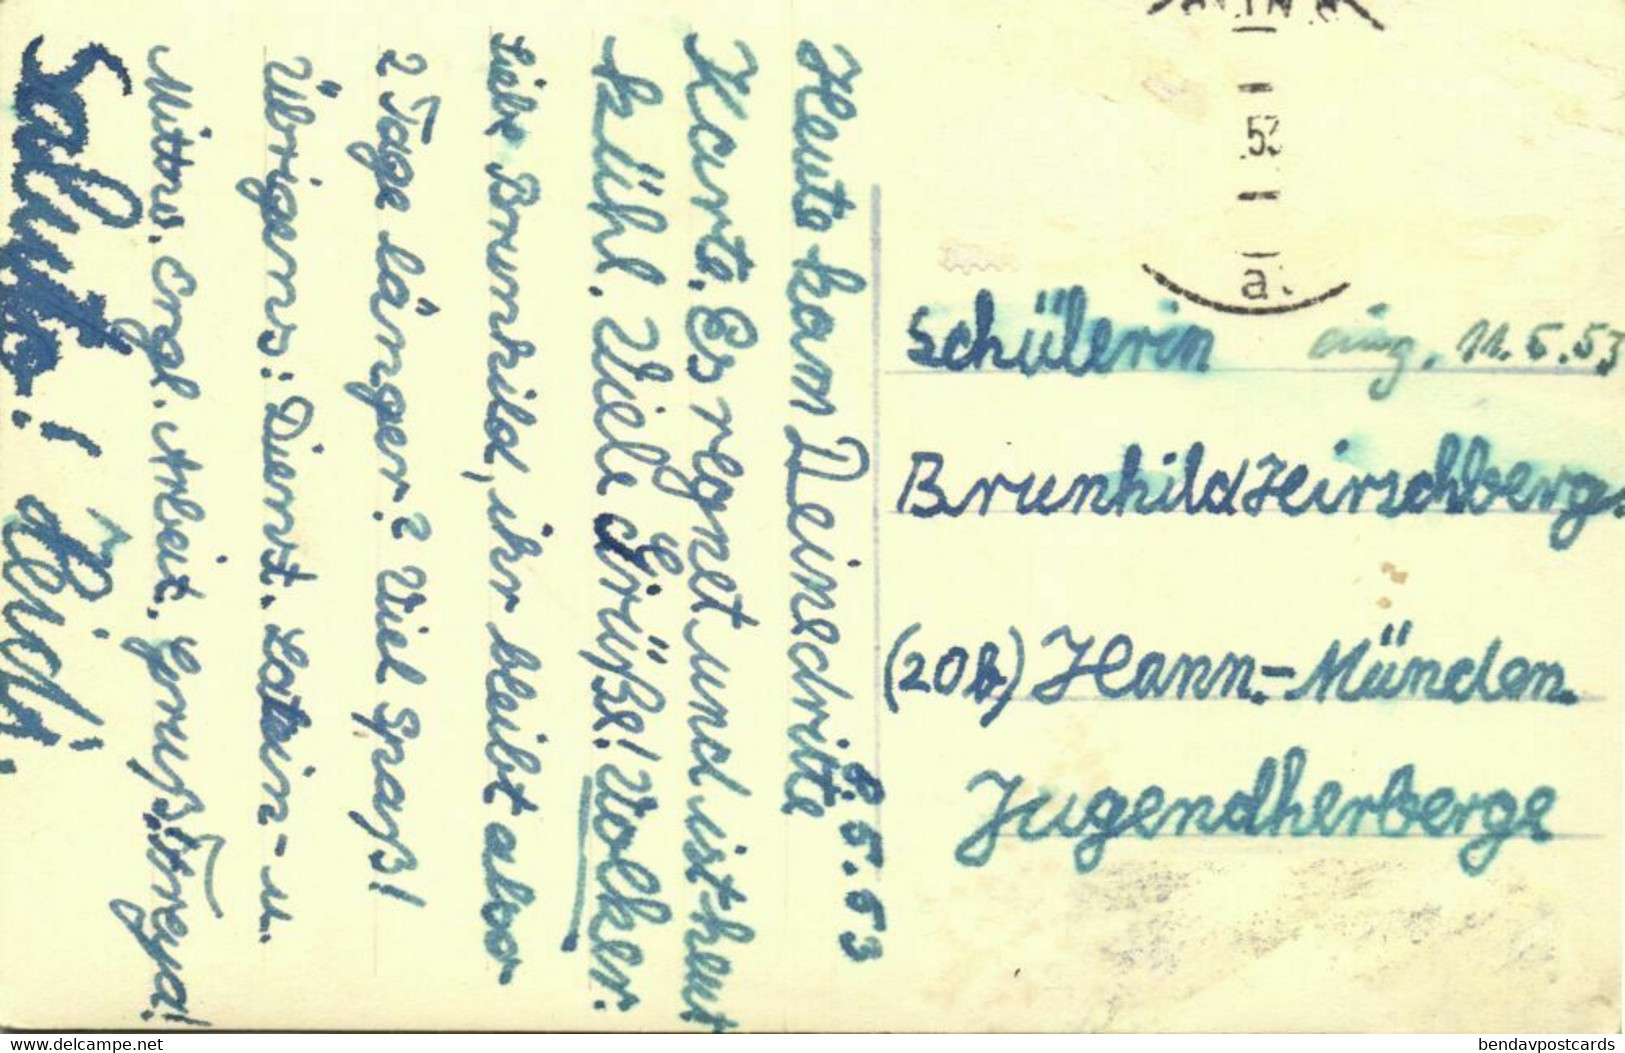 8.5.53
Heute kam Deine dritte
Karte. Es regnet und ist heut
kühl. Viele Grüße! Volker.
Liebe Brunhild, ihr bleibt also
2 Tage länger? Viel Spaß!
Übrigens: Dienst. Latein- u.
Mittw. Engl. Arbeit. Gruß, Freya!
Salute! Heidi.
53
a.
Schülerin eing. 11.5.53
Brunhild Hirschberg.
(20b) Hann.-Münden.
Jugendherberge
www.delcampe.net
bendavpostcards